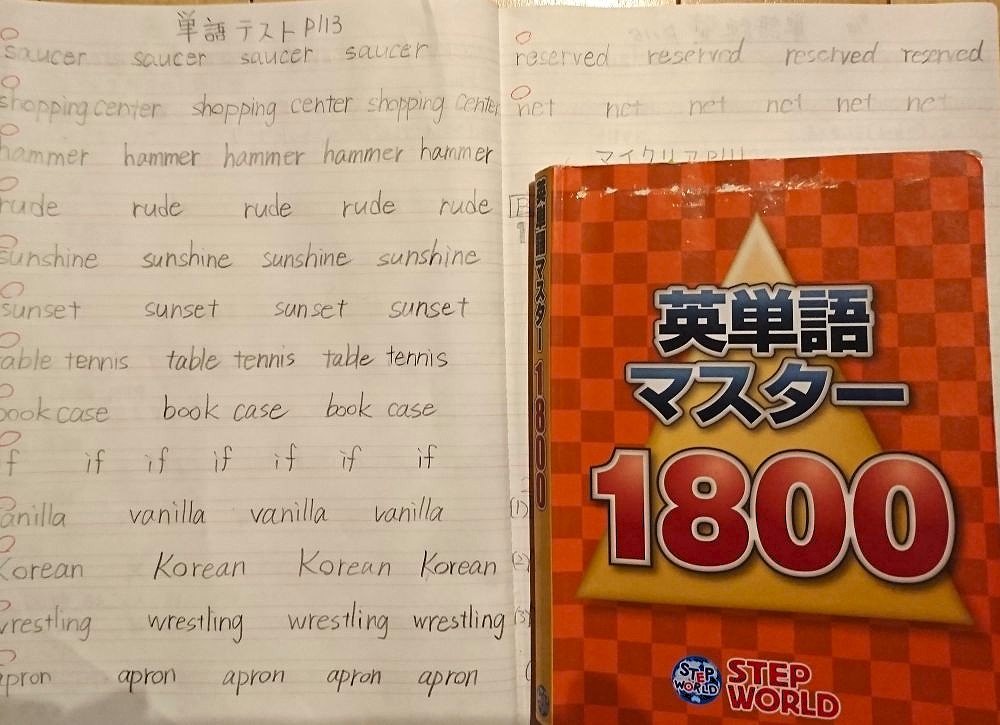 単語テスト P113
saucer saucer saucer saucer
shopping center shopping center shopping center
hammer hammer hammer hammer hammer
rude rude rude rude rude
sunshine sunshine sunshine sunshine
sunset sunset sunset sunset
table tennis table tennis table tennis
book case book case book case
if if if if if if if
vanilla vanilla vanilla vanilla
Korean Korean Korean Korean
wrestling wrestling wrestling wrestling
apron apron apron apron apron
reserved reserved reserved reserved
net net net net net net
マイクリア P111
(1)
(2)
(3)
英単語マスター1800
英単語
マスター
1800
STEP WORLD
STEP
WORLD